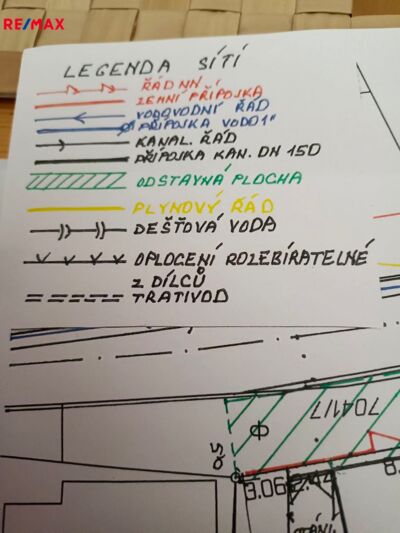 RE/MAX
LEGENDA SÍTÍ
ŘÁD NN
ZEMNÍ PŘÍPOJKA
VODOVODNÍ ŘÁD
PŘÍPOJKA VODO 1"
KANAL. ŘÁD
PŘÍPOJKA KAN. DN 150
ODSTAVNÁ PLOCHA
PLYNOVÝ ŘÁD
DEŠŤOVÁ VODA
OPLOCENÍ ROZEBÍRATELNÉ
Z DÍLCŮ
TRATIVOD
704/17
3.06